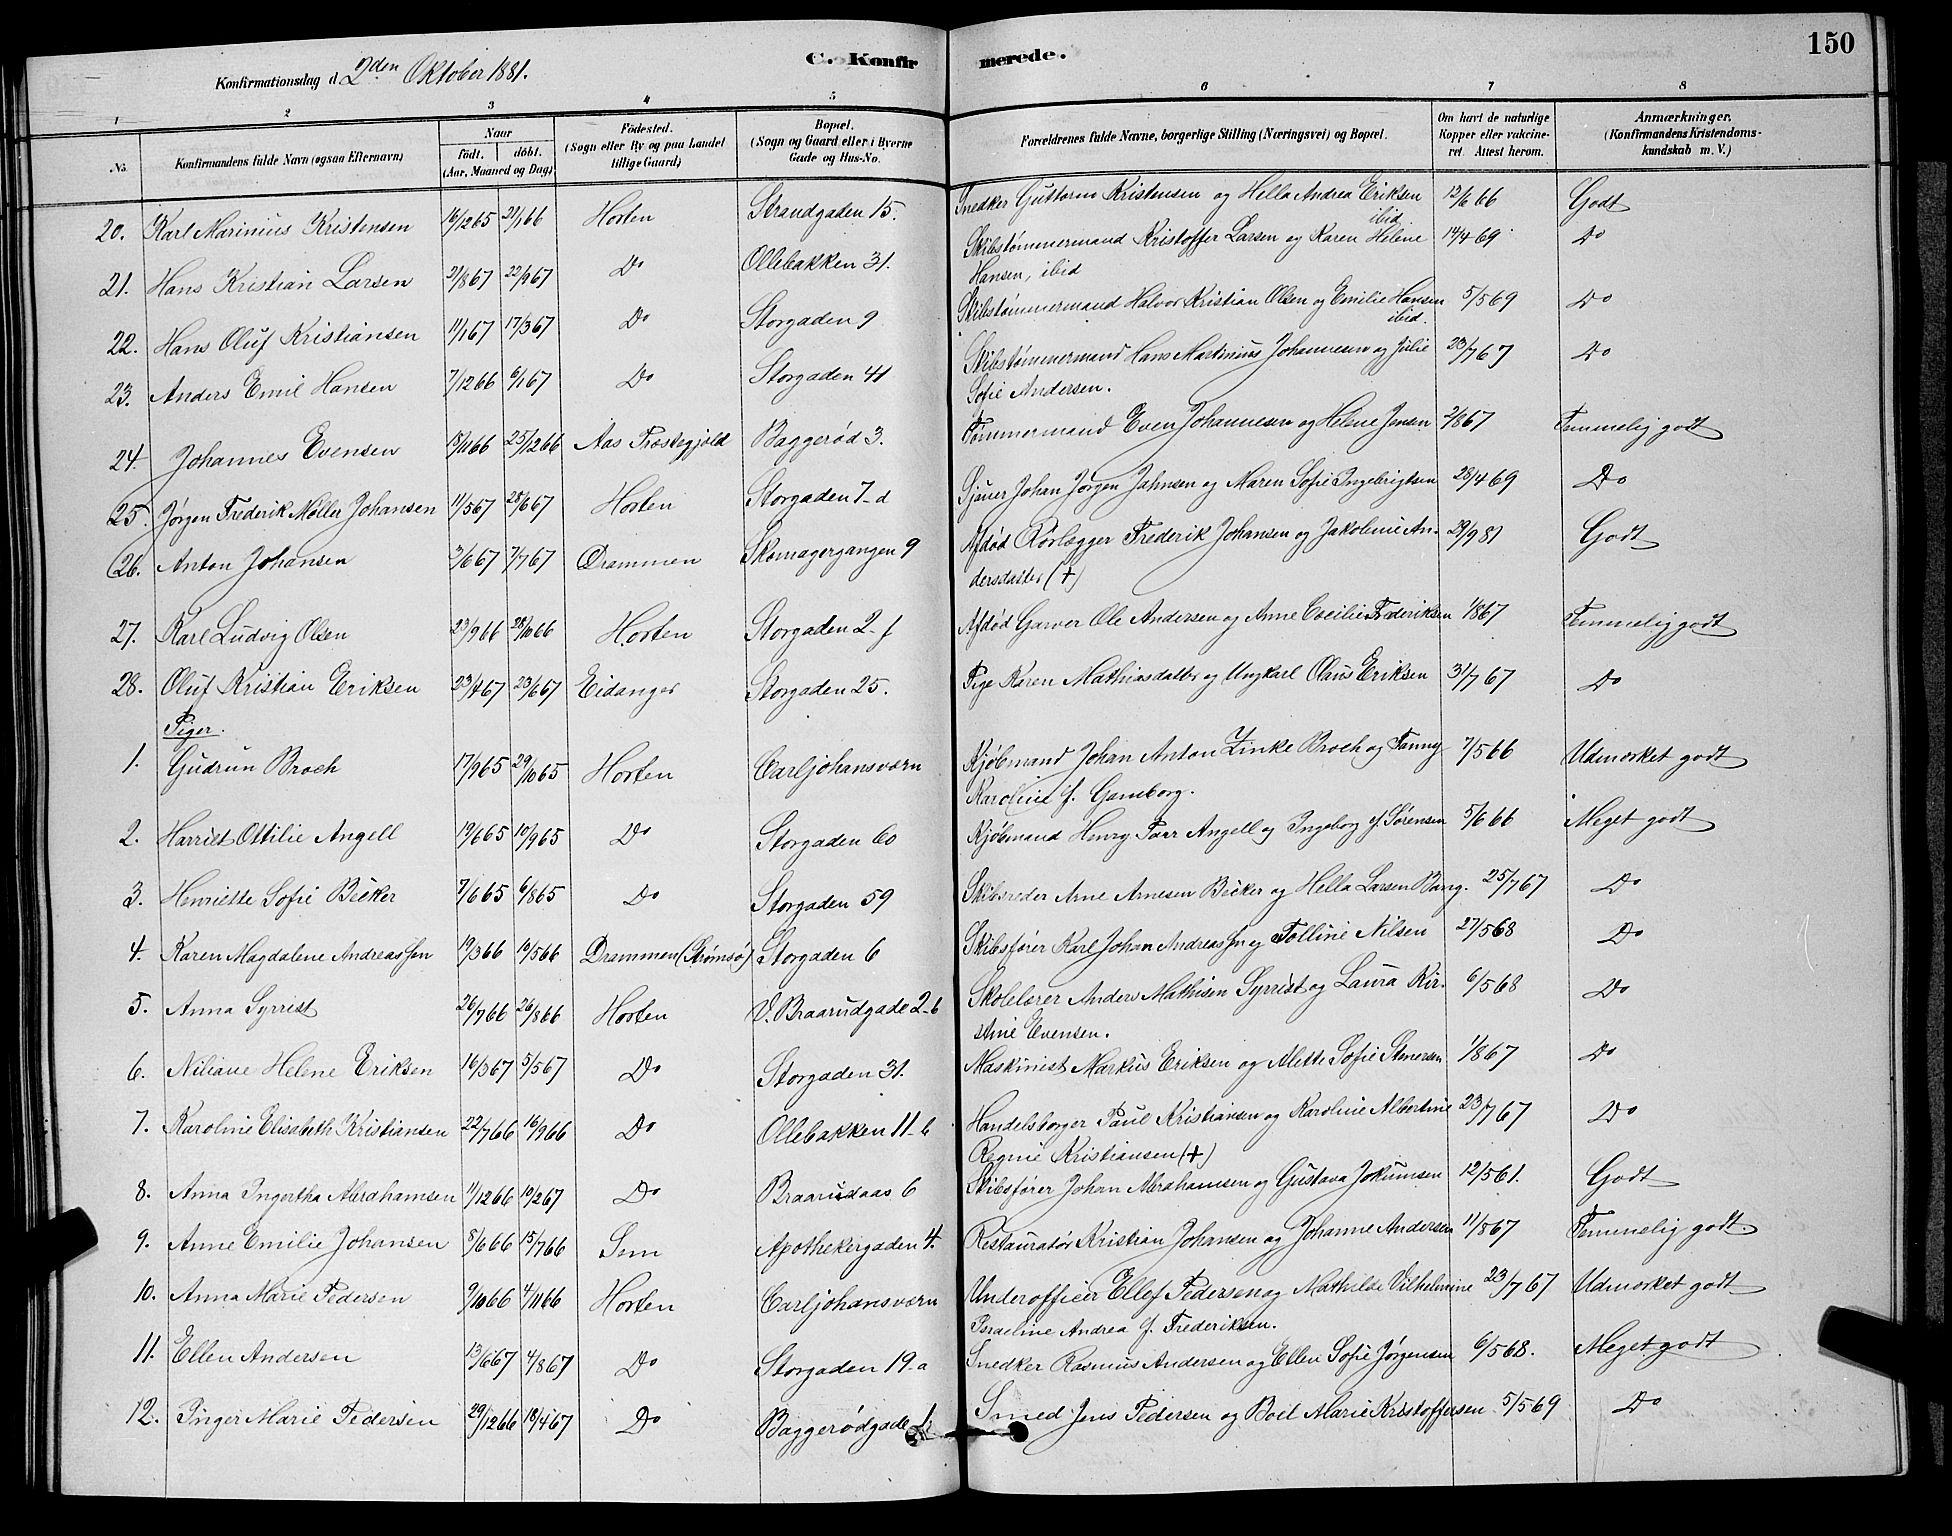 150
Konfirmationsdag d. 2den Oktober 1881.
C. Konfirmerede.
1 2 3 4 5 6 7 8
No. Konfirmandens fulde Navn (ogsaa Efternavn) Naar født. døbt. (Aar, Maaned og Dag) Fødested. (Sogn eller By og paa Landet tillige Gaard) Bopæl. (Sogn og Gaard eller i Byerne Gade og Hus-No. Forældrenes fulde Navne, borgerlige Stilling (Næringsvei) og Bopæl. Om havt de naturlige Kopper eller vakcineret. Attest herom. Anmærkninger. (Konfirmandens Kristendomskundskab m. V.)
20. Karl Marinius Kristensen 16/12 65 21/1 66 Horten Strandgaden 15. Snedker Guttorm Kristensen og Hella Andrea Eriksen ibid 12/6 66 Godt
21. Hans Kristian Larsen 21/8 67 22/9 67 Do Ollebakken 31. Skibstømmermand Kristoffer Larsen og Karen Helene Hansen, ibid 14/4 69 Do
22. Hans Oluf Kristiansen 11/1 67 17/3 67 Do Storgaden 9 Skibstømmermand Halvor Kristian Olsen og Emilie Hansen ibid. 5/5 69 Do
23. Anders Emil Hansen 7/12 66 6/1 67 Do Storgaden 41 Skibstømmermand Hans Martinius Johannesen og Julie Sofie Andersen. 23/7 67 Do
24. Johannes Evensen 18/11 66 25/12 66 Aas Præstegjeld Baggerød 3. Tømmermand Even Johannesen og Helene Jensen 2/8 67 Temmelig godt
25. Jørgen Frederik Møller Johansen 11/5 67 28/6 67 Horten Storgaden 7-d Sjauer Johan Jørgen Jahnsen og Maren Sofie Ingebrigtsen 28/4 69 Do
26. Anton Johansen 2/6 67 7/7 67 Drammen Skomagergangen 9 Afdød Rørlægger Frederik Johansen og Jakobine Andersdatter (+) 29/9 81 Godt
27. Karl Ludvig Olsen 23/9 66 28/10 66 Horten Storgaden 2-f Afdød Garver Ole Andersen og Anne Cecilie Frederiksen 1/8 67 Temmelig godt
28. Oluf Kristian Eriksen 23/4 67 23/6 67 Eidanger Storgaden 25. Pige Karen Mathiasdatter og Ungkarl Olaus Eriksen 31/7 67 Do
Piger.
1. Gudrun Broch 17/9 65 29/10 65 Horten Carljohansværn Kjøbmand Johan Anton Zinke Broch og Fanny Karoline f. Gamborg. 7/5 66 Udmærket godt
2. Harriet Ottilie Angell 19/6 65 10/9 65 Do Storgaden 60 Kjøbmand Henry Parr Angell og Ingeborg f Sørensen 5/6 66 Meget godt
3. Henriette Sofie Bicker 7/6 65 6/8 65 Do Storgaden 59 Skibsreder Arne Arnesen Bicker og Hella Larsen Bang. 25/7 67 Do
4. Karen Magdalene Andreassen 19/3 66 10/5 66 Drammen (Strømsø) Storgaden 6 Skibsfører Karl Johan Andreassen og Tolline Nilsen 27/5 68 Do
5. Anna Syrrist 26/7 66 26/8 66 Horten V. Braarudgade 2-b Skolelærer Anders Mathisen Syrrist og Laura Kirstine Evensen. 6/5 68 Do
6. Niliane Helene Eriksen 16/3 67 5/5 67 Do Storgaden 31. Maskinist Markus Eriksen og Alette Sofie 1/8 67 Do
7. Karoline Elisabeth Kristiansen 22/7 66 16/9 66 Do Ollebakken 11-b Handelsborger Paul Kristiansen og Karoline Albertine Regine Kristiansen (+) 23/7 67 Do
8. Anna Ingertha Abrahamsen 11/12 66 10/2 67 Do Braarudaas 6 Skibsfører Johan Abrahamsen og Gustava Jokumsen 12/5 61. Godt
9. Anne Emilie Johansen 8/6 66 15/7 66 Sem Apothekergaden 4. Restauratør Kristian Johansen og Johanne Andersen 11/8 67 Temmelig godt
10. Anna Marie Pedersen 9/10 66 4/11 66 Horten Carljohansværn Underofficer Ellef Pedersen og Mathilde Vilhelmine Israeline Andrea f. Frederiksen. 23/7 67 Udmærket godt
11. Ellen Andersen 13/6 67 4/8 67 Do Storgaden 19-a Snedker Rasmus Andersen og Ellen Sofie Jørgensen 6/5 68. Meget godt
12. Inger Marie Pedersen 29/12 66 18/4 67 Do Baggerødgade Smed Jens Pedersen og Boel Marie Kristoffersen 5/5 69 Do